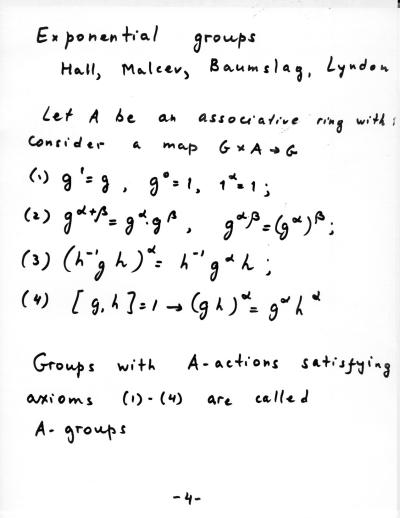 Exponential groups
Hall, Malcev, Baumslag, Lyndon
Let A be an associative ring with 1
Consider a map G×A→G
(1) g¹=g, g⁰=1, 1^α=1;
(2) g^{α+β}=g^α·g^β, g^{αβ}=(g^α)^β;
(3) (h⁻¹gh)^α=h⁻¹g^αh;
(4) [g,h]=1→(gh)^α=g^αh^α
Groups with A-actions satisfying
axioms (1)-(4) are called
A-groups
-4-